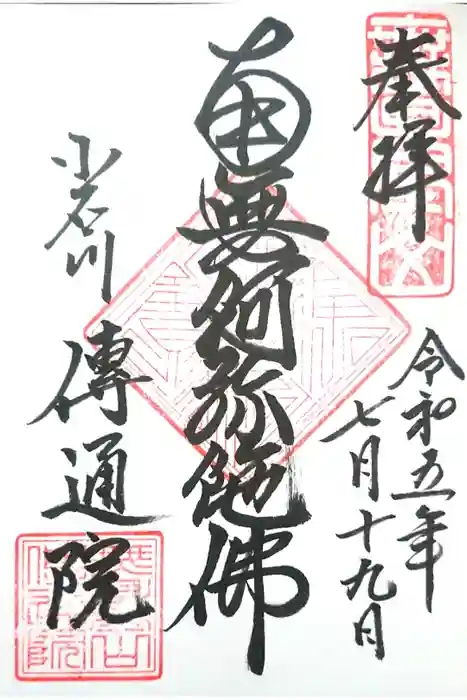 奉拝
令和五年
七月十九日
南無阿弥陀佛
小石川
傳通院